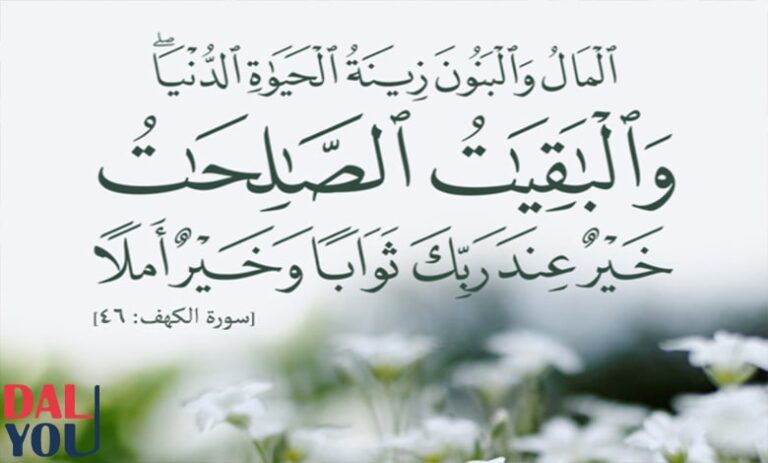 ٱلۡمَالُ وَٱلۡبَنُونَ زِينَةُ ٱلۡحَيَوٰةِ ٱلدُّنۡيَاۖ
وَٱلۡبَٰقِيَٰتُ ٱلصَّٰلِحَٰتُ
خَيۡرٌ عِندَ رَبِّكَ ثَوَابٗا وَخَيۡرٌ أَمَلٗا
[سورة الكهف: ٤٦]
DAL
YOU